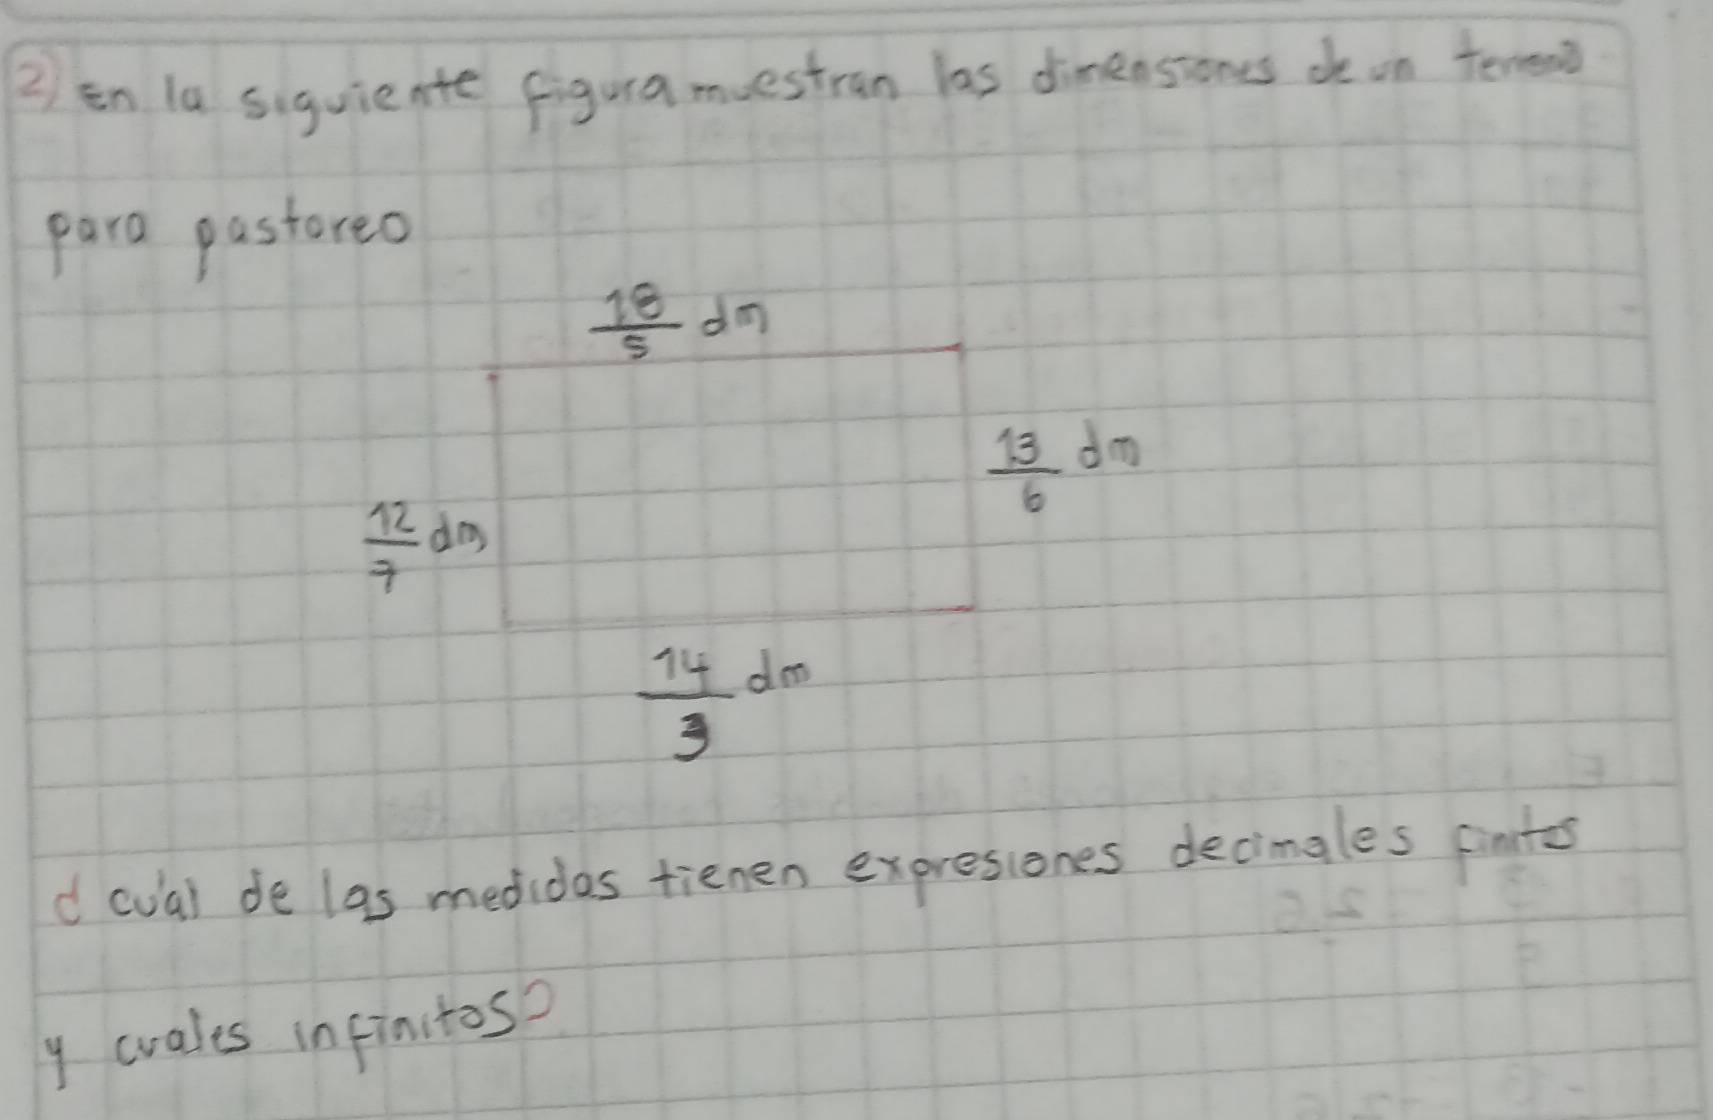 2) En la siguiente figura muestran las dimensiones de un terreno
para pastoreo
18/5 dm
13/6 dm
12/7 dm
14/3 dm
¿ cuál de las medidas tienen expresiones decimales finitos
y cuales infinitos?